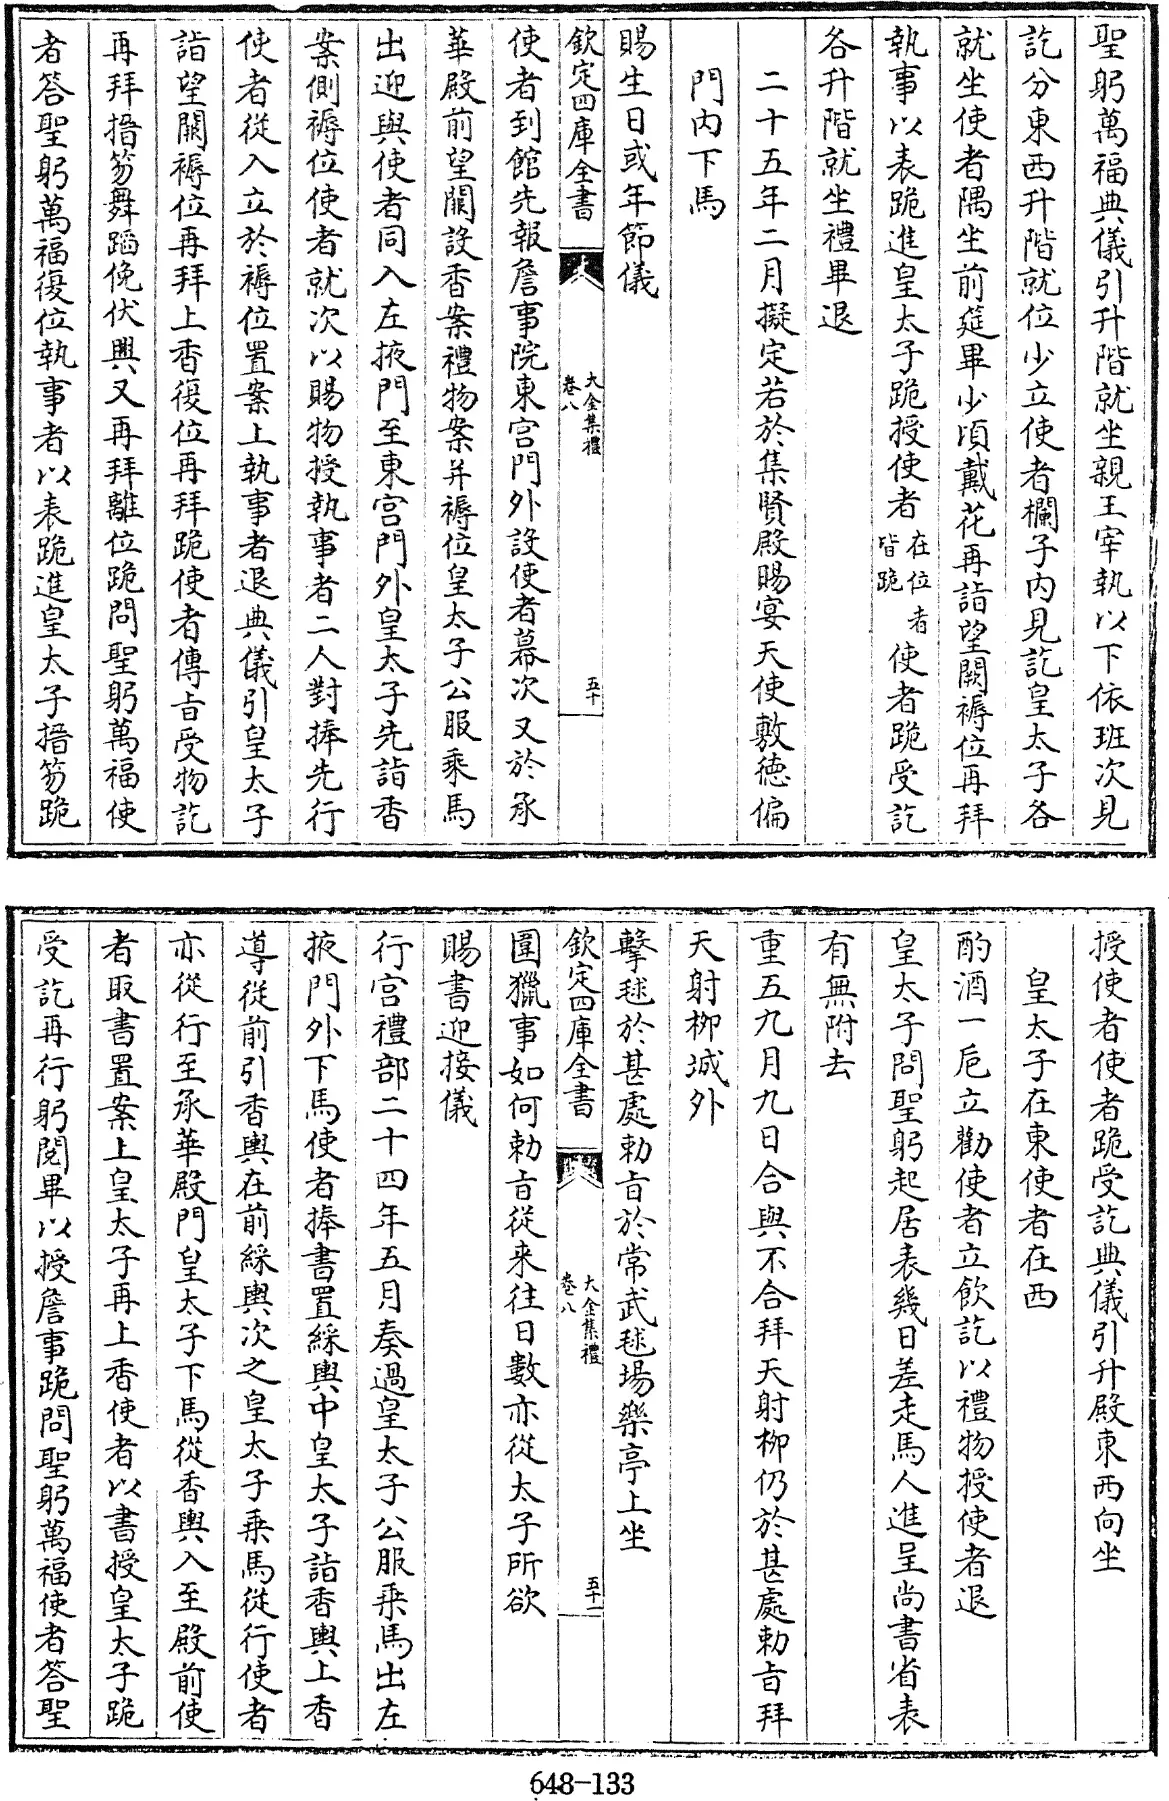 聖躬萬福典儀引升階就坐親王宰執以下依班次見
訖分東西升階就位少立使者欄子内見訖皇太子各
就坐使者隅坐前筵畢少頃戴花再詣望闕褥位再拜
執事以表跪進皇太子跪授使者在位者皆跪使者跪受訖
各升階就坐禮畢退
二十五年二月擬定若於集賢殿賜宴天使敷德偏
門内下馬
賜生日或年節儀
欽定四庫全書
大金集禮
卷八
五十
使者到館先報詹事院東宫門外設使者幕次又於承
華殿前望闕設香案禮物案并褥位皇太子公服乘馬
出迎與使者同入左掖門至東宫門外皇太子先詣香
案側褥位使者就次以賜物授執事者二人對捧先行
使者從入立於褥位置案上執事者退典儀引皇太子
詣望闕褥位再拜上香復位再拜跪使者傳旨受物訖
再拜搢笏舞蹈俛伏興又再拜離位跪問聖躬萬福使
者答聖躬萬福復位執事者以表跪進皇太子搢笏跪
授使者使者跪受訖典儀引升殿東西向坐
皇太子在東使者在西
酌酒一巵立勸使者立飲訖以禮物授使者退
皇太子問聖躬起居表幾日差走馬人進呈尚書省表
有無附去
重五九月九日合與不合拜天射柳仍於甚處勅旨拜
天射柳城外
擊毬於甚處勅旨於常武毬場樂亭上坐
欽定四庫全書
大金集禮
卷八
五十一
圍獵事如何勅旨從来往日數亦從太子所欲
賜書迎接儀
行宫禮部二十四年五月奏過皇太子公服乘馬出左
掖門外下馬使者捧書置綵輿中皇太子詣香輿上香
導從前引香輿在前綵輿次之皇太子乘馬從行使者
亦從行至承華殿門皇太子下馬從香輿入至殿前使
者取書置案上皇太子再上香使者以書授皇太子跪
受訖再行躬閲畢以授詹事跪問聖躬萬福使者答聖
648-133